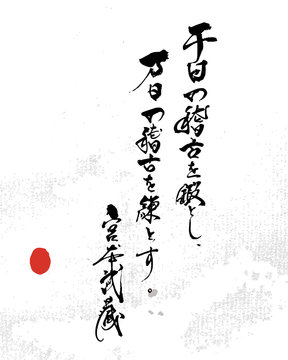 千日の稽古を鍛とし、
万日の稽古を錬とす。
宮本武蔵